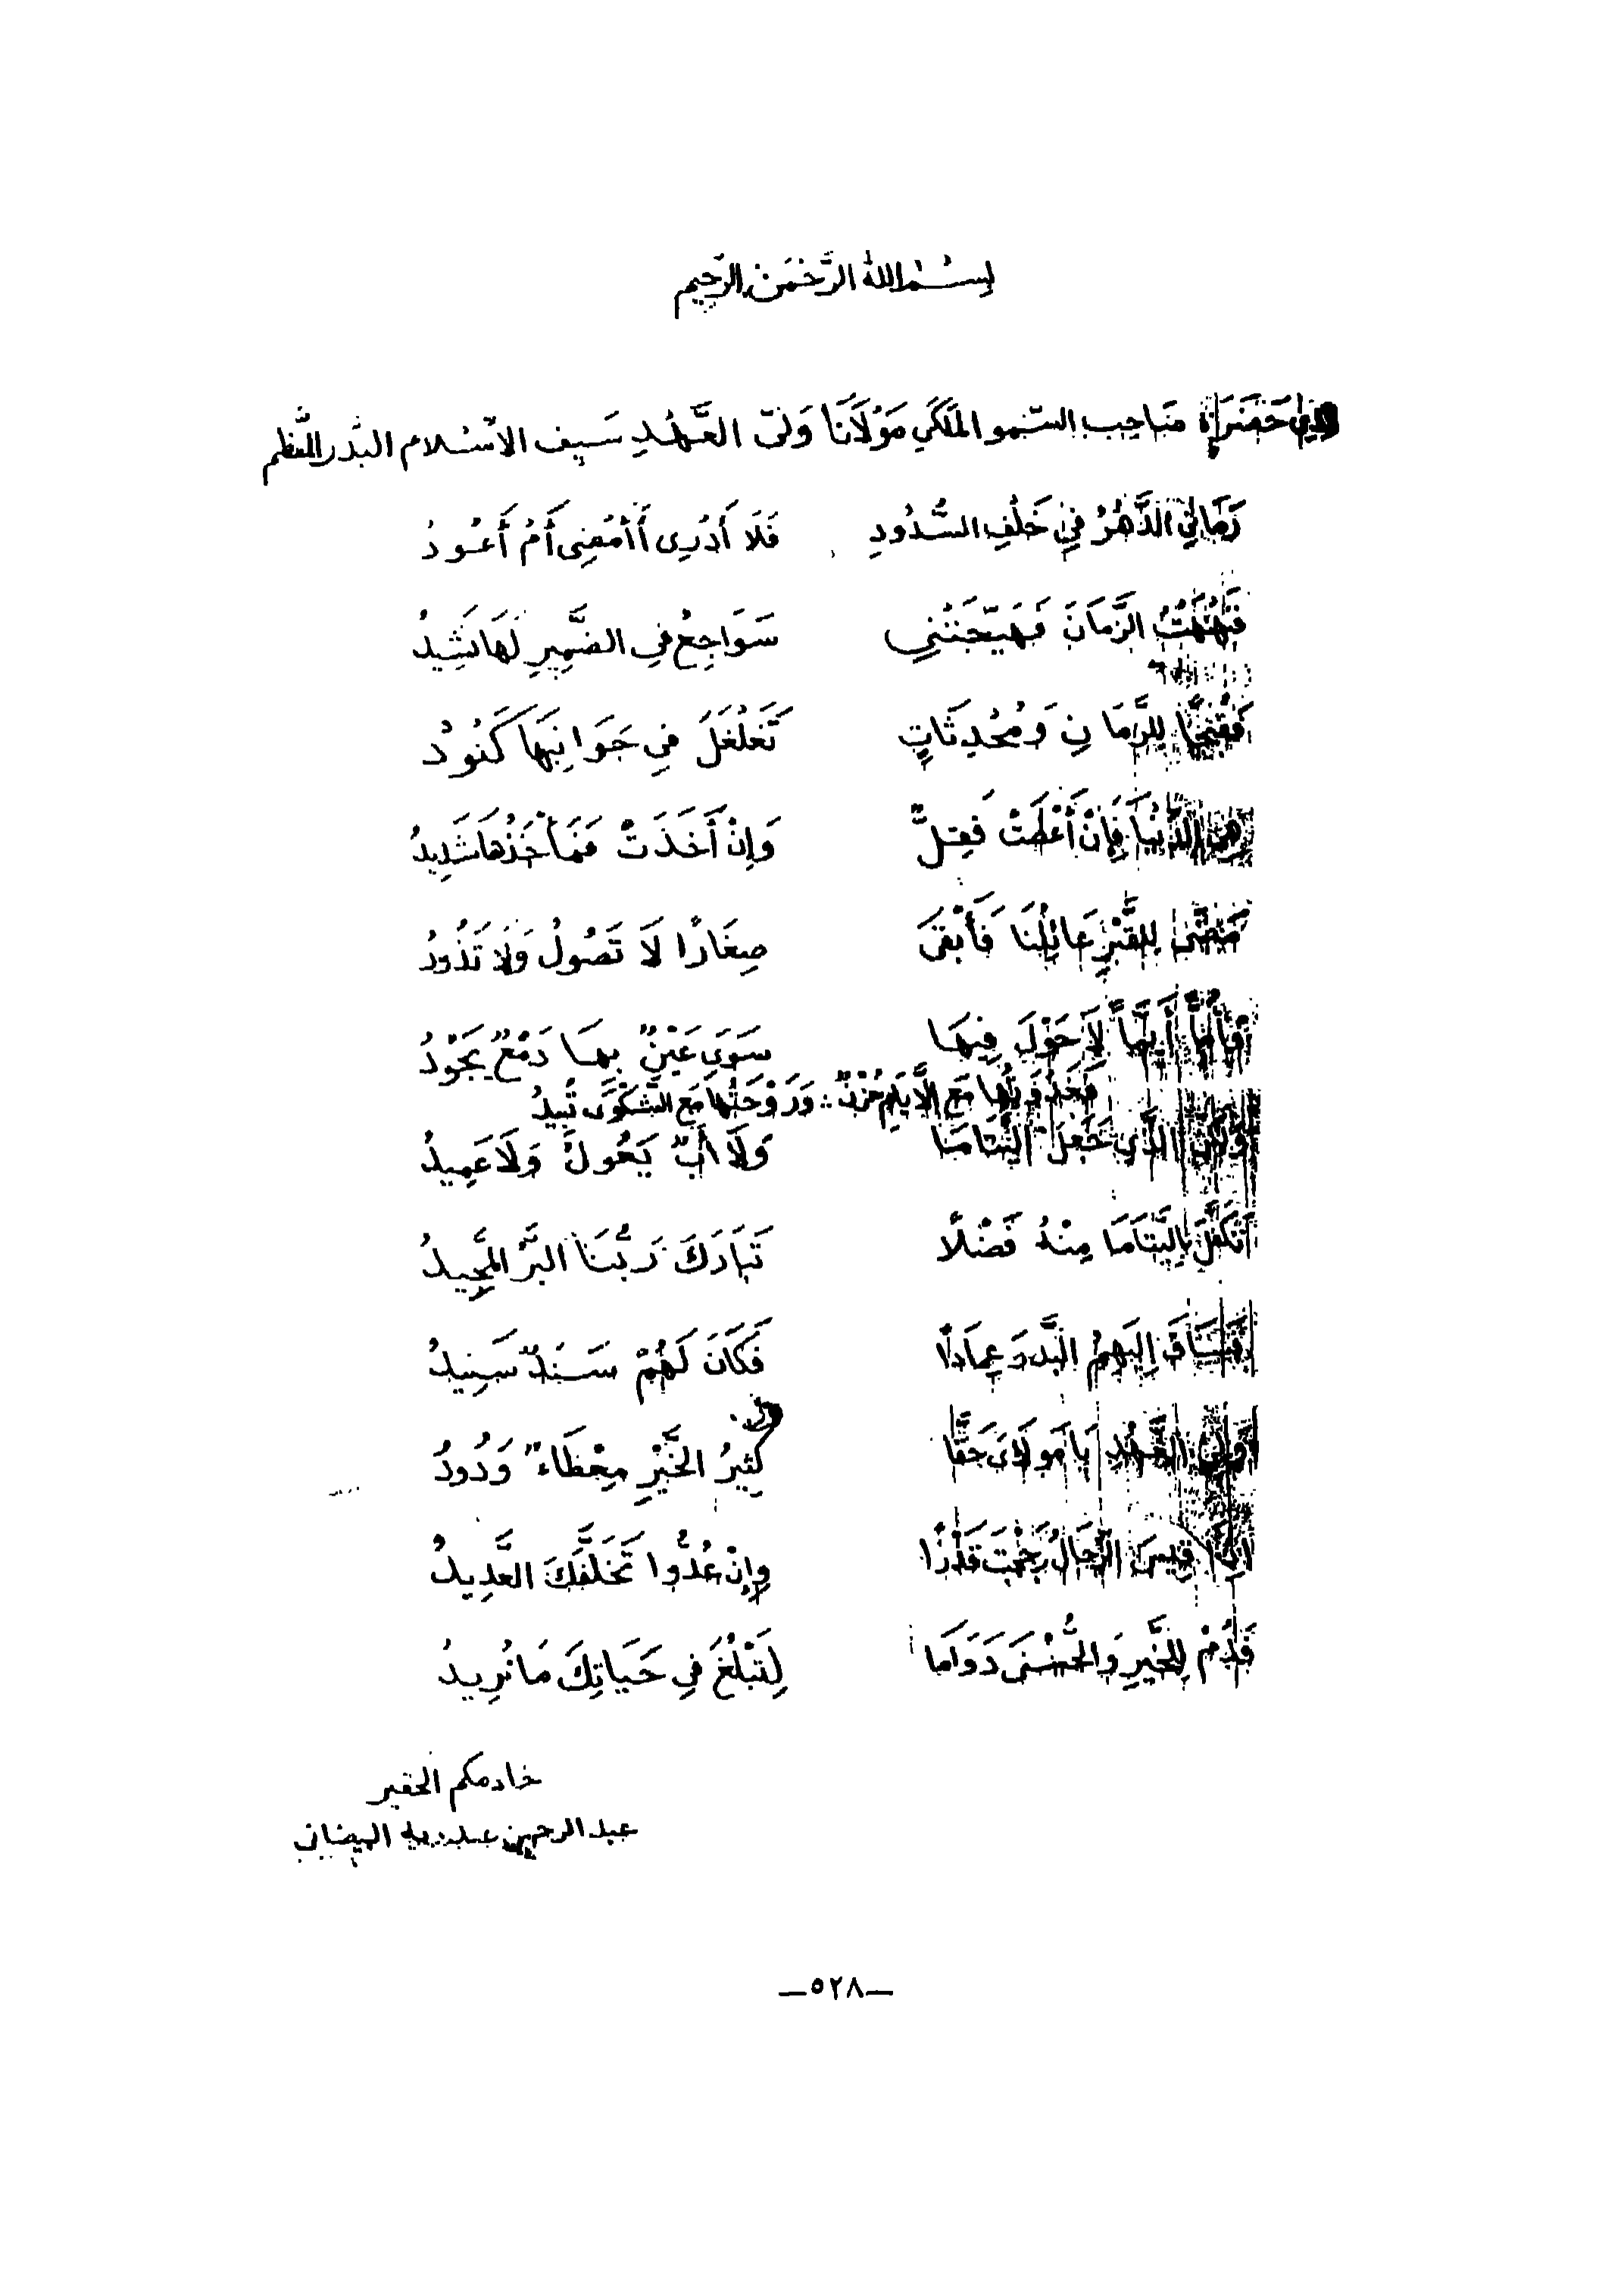 بِسْمِ اللهِ الرَّحْمَنِ الرَّحِيمِ
إلى حَضْرَةِ صَاحِبِ السُّمُو المَلَكِي مَوْلَانَا وَلِيّ العَهْدِ سَيفِ الاسْلَامِ البَدْرِ المُعَظَّمِ
رَمَانِي الدَّهْرُ فِي خَلْفِ السُّدُودِ فَلَا أَدْرِى أَأَمْضِى أَمْ أَعُودُ
الزَّمَانَ فَهَيَّجَتْنِي سَوَاجِعُ فِي الضَّمِيرِ لَهَا نَشِيدُ
لِلزَّمَانِ وَمُحْدِثَاتٍ تَغَلْغَلَ فِي جَوَانِبِهَا كَنُودُ
هِيَ الدُّنْيَا فَإِنْ أَعْطَتْ فَقِلٌّ وَإِنْ أَخَذَتْ فَمَأْخَذُهَا شَدِيدُ
مَضَى لِلقَبْرِ عَائِلُنَا فَأَبْقَى صِغَارًا لَا تَصُولُ وَلَا تَذُودُ
لَا حَوْلَ فِيهَا سَوَى عَيْنٍ بِهَا دَمْعٌ يَجُوْدُ
مَعَ الْأَيَّامِ حُزْنٌ ∴ وَرَوْحَتُهَا مَعَ الشَّكْوَى تُبِيدُ
الَّذِي جَعَلَ اليَتَامَا وَلَا أَبٌ يَعُولُ وَلَا عَمِيدُ
تَكَفَّلَ بِاليَتَامَا مِنْهُ فَضْلًا تَبَارَكَ رَبُّنَا البَرُّ المَجِيدُ
فَسَاقَ إِلَيهِمُ البَدْرَ عِمَادًا فَكَانَ لَهُمْ سَنَدٌ سَنِيدُ
وَلِيَّ العَهْدِ يَا مَولَايَ حَقًّا كَثِيرُ الخَيْرِ مِعْطَاءٌ وَدُودُ
إِذَا قِيسَ الرِّجَالُ رَجَحْتَ قَدْرًا وَإِنْ عُدُّوا تَخَلَّفَكَ العَدِيدُ
فَدُمْ لِلخَيرِ وَالحُسْنَى دَوَامَا لِتَبْلُغَ فِي حَيَاتِكَ مَا تُرِيدُ
خادمكم الحقير
عبد الرحمن البيضاني
—٥٢٨—